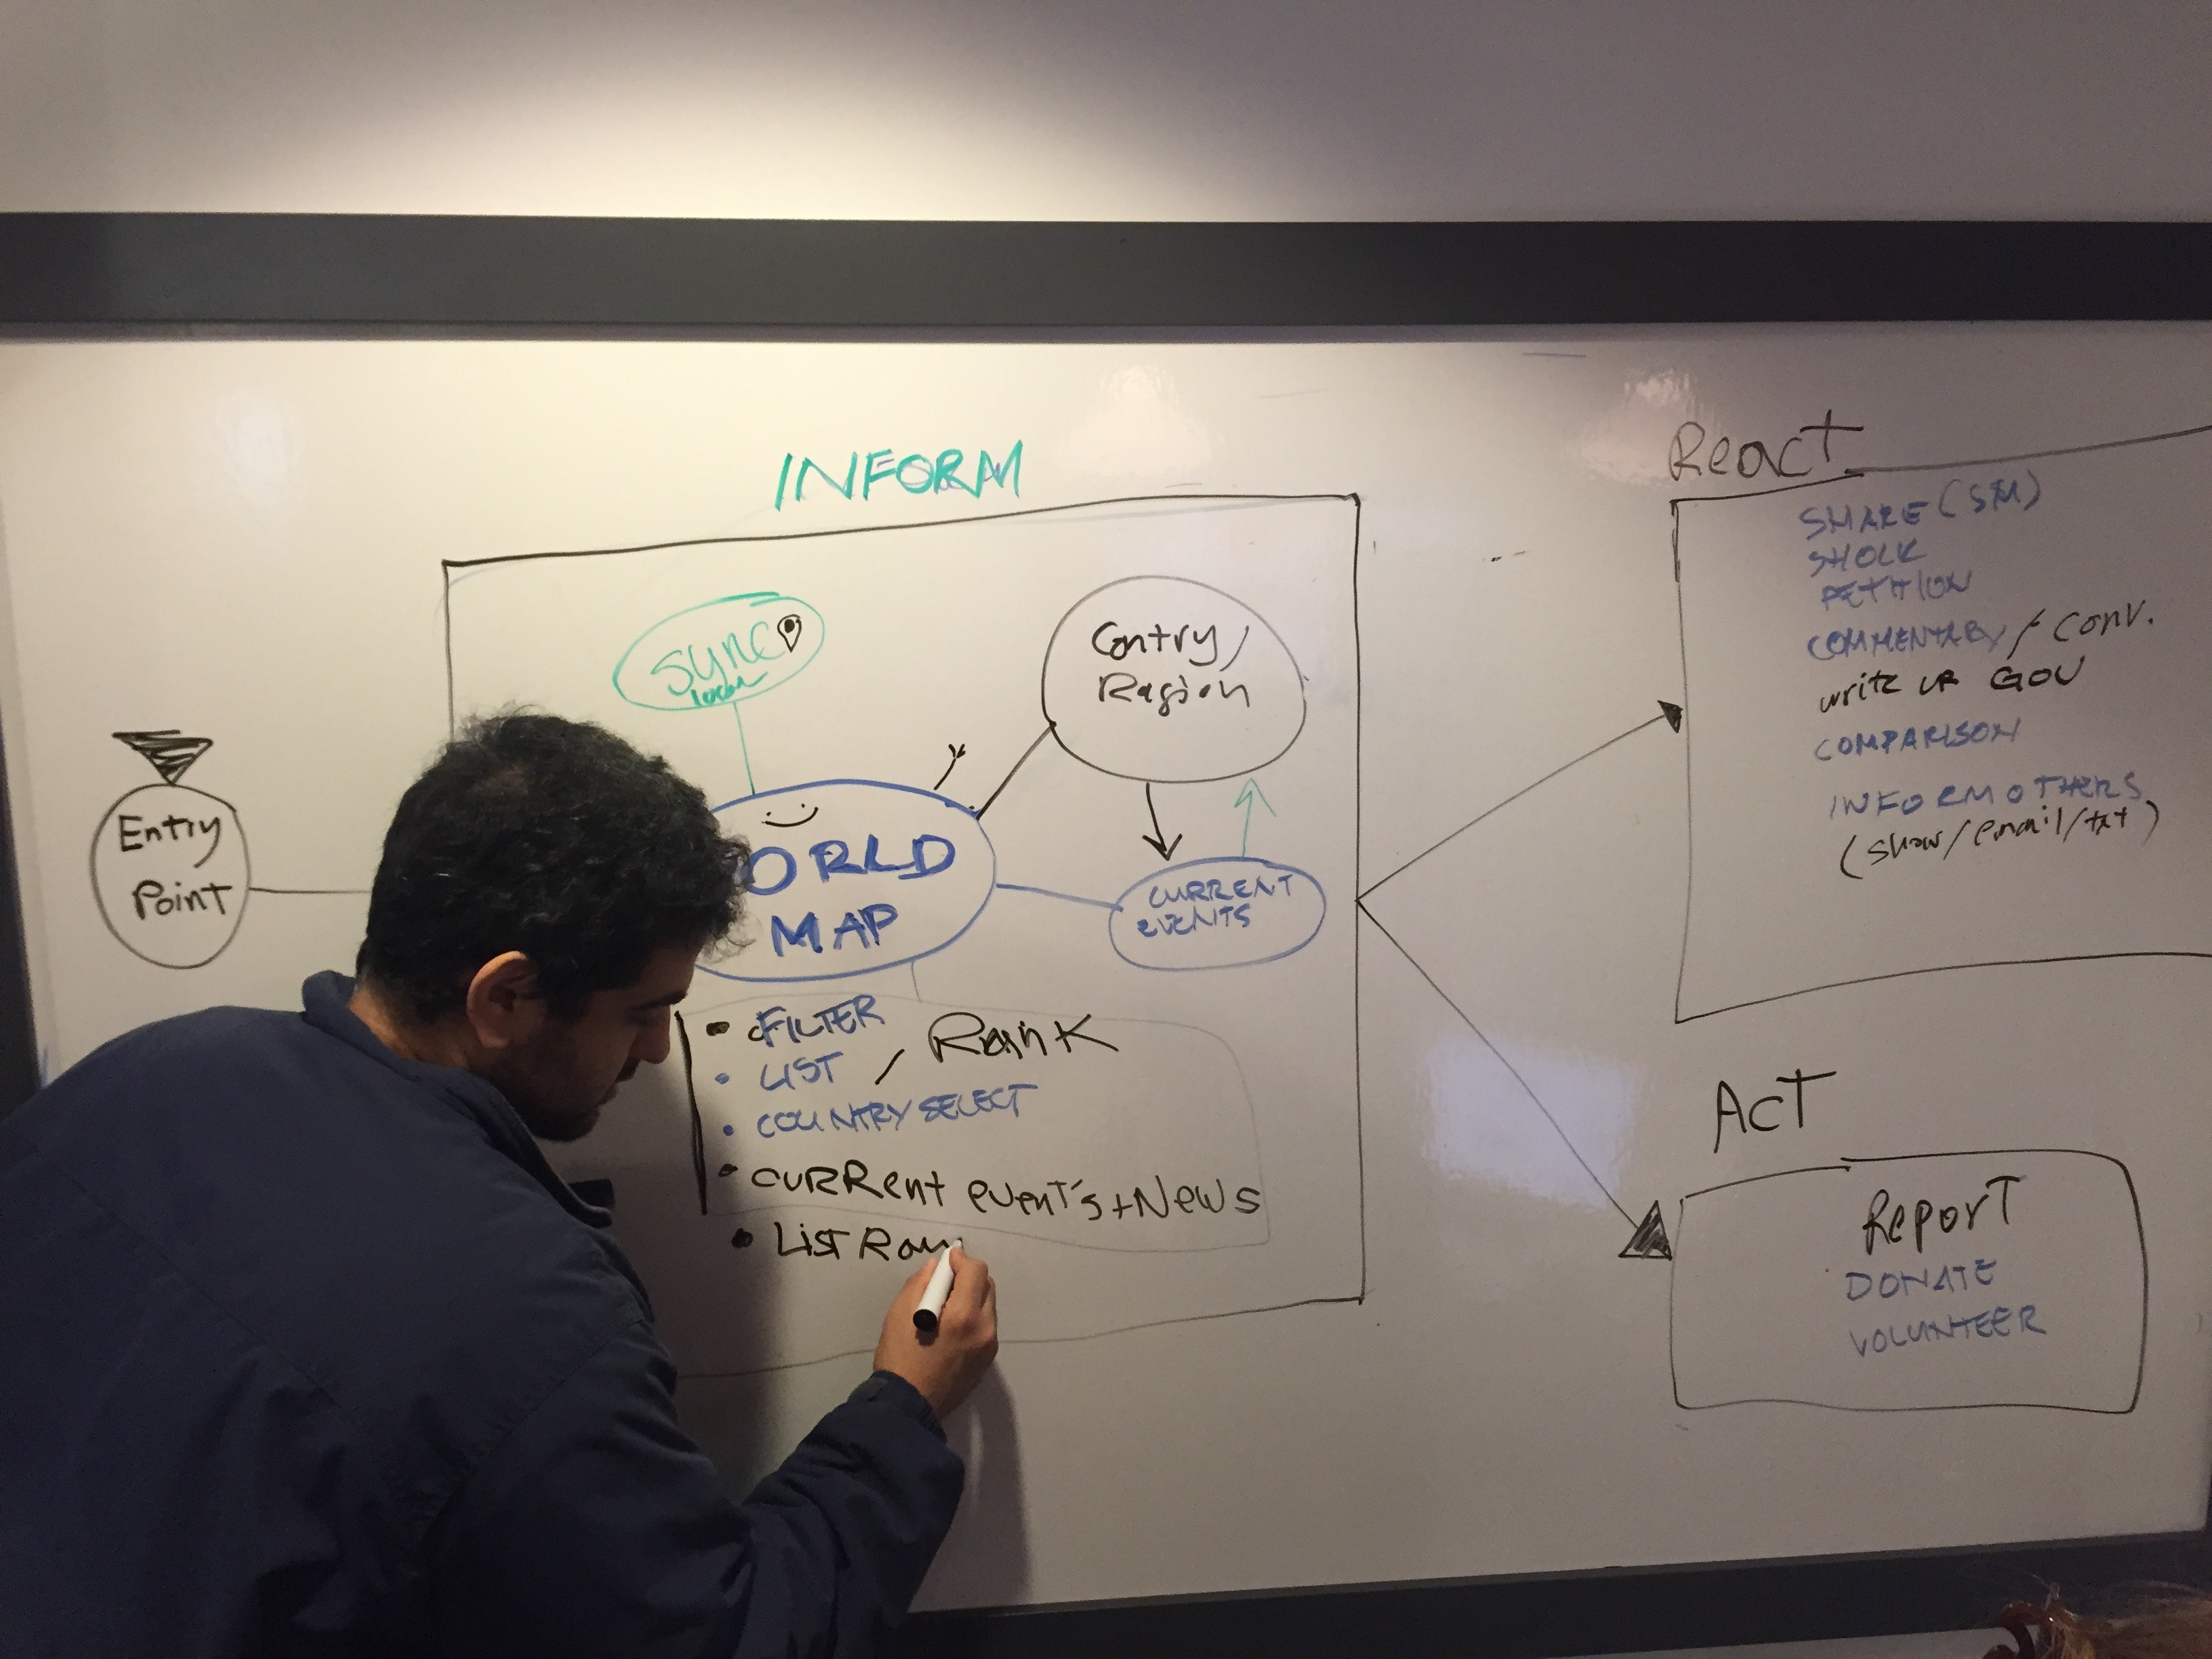 INFORM
Sync
Contry/
Region
Entry
Point
ORLD
MAP
CURRENT
EVENTS
• FILTER
• LIST / Rank
• COUNTRY SELECT
• CURRent event's + News
• List Ran
React
SHARE (SM)
SHOCK
PETITION
COMMENTARY / Conv.
write ur GOV
COMPARISON
INFORM OTHERS
(show/email/txt)
ACT
Report
DONATE
VOLUNTEER